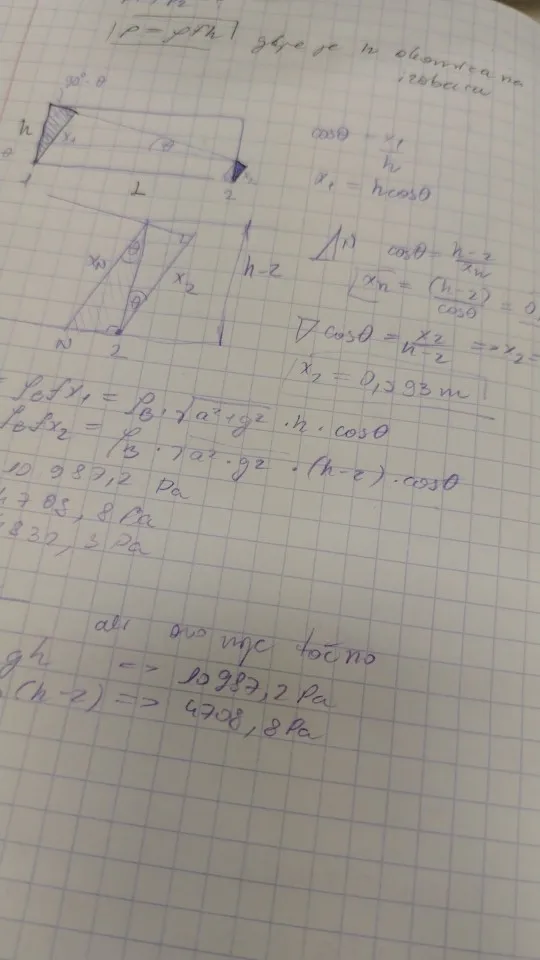 p = ρfh gdje je h okomica na
izobaru
90°-θ
h
x₁
θ
1
L
2
cosθ = x₁/h
x₁ = hcosθ
xₙ
θ
x₂
h-z
N
2
cosθ = (h-z)/xₙ
xₙ = (h-z)/cosθ
cosθ = x₂/(h-z) => x₂ =
x₂ = 0,393 m
ρ_B f x₁ = ρ_B · √a²+g² · h · cosθ
ρ_B f x₂ = ρ_B · √a²·g² · (h-z) · cosθ
10 987,2 Pa
4708,8 Pa
830,3 Pa
ali ovo nije točno
gh => 10987,2 Pa
(h-z) => 4708,8 Pa